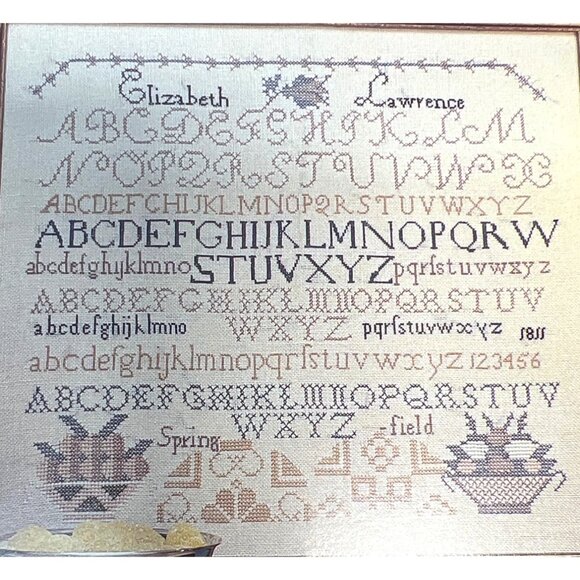 Elizabeth Lawrence
ABCDEFGHIKLM
NOPQRSTUVWX
ABCDEFGHIJKLMNOPQRSTUVWXYZ
ABCDEFGHIJKLMNOPQRW
abcdefghyklmno STUVXYZ pqrſstuvwxyz
ABCDEFGHIKLMNOPQRSTUV
abcdefghijklmno WXYZ pqrſstuvwxyz 1811
abcdefghijklmnopqrſstuvwxyz 123456
ABCDEFGHIKLMNOPQRSTUV
WXYZ
Spring -field